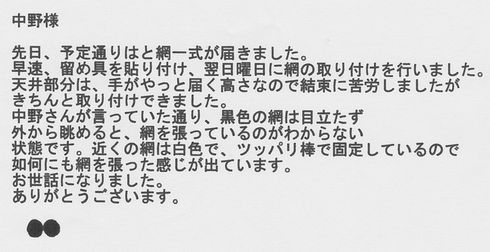 中野様
先日、予定通りはと網一式が届きました。
早速、留め具を貼り付け、翌日曜日に網の取り付けを行いました。
天井部分は、手がやっと届く高さなので結束に苦労しましたが
きちんと取り付けできました。
中野さんが言っていた通り、黒色の網は目立たず
外から眺めると、網を張っているのがわからない
状態です。近くの網は白色で、ツッパリ棒で固定しているので
如何にも網を張った感じが出ています。
お世話になりました。
ありがとうございます。
●●